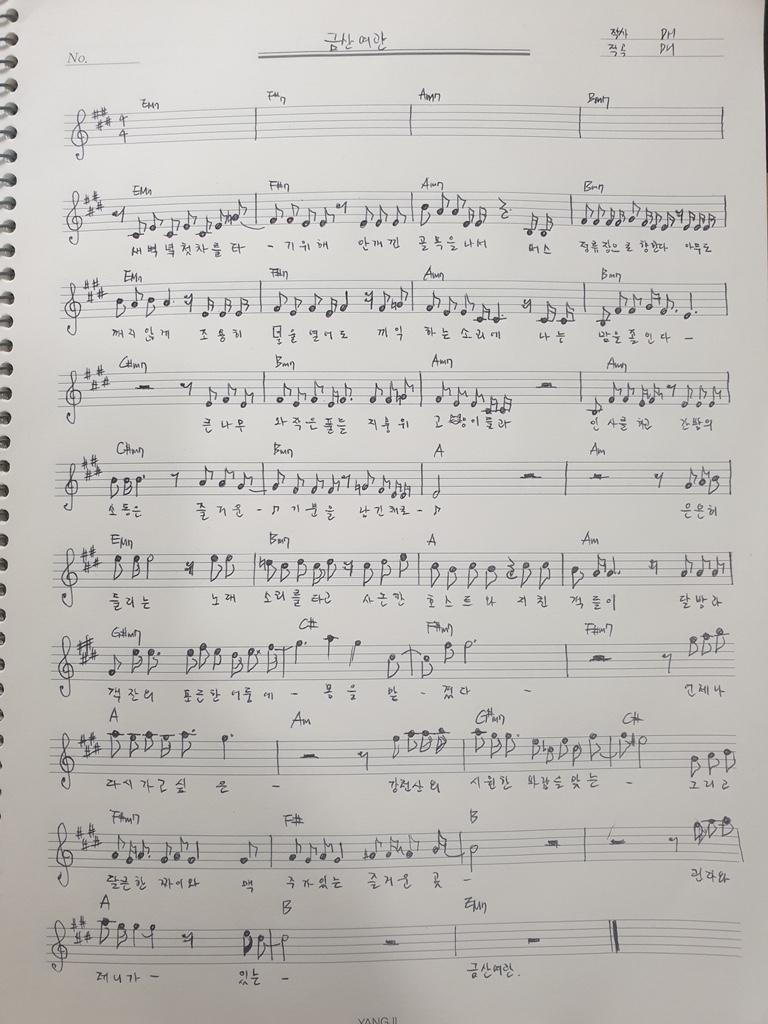 금산여관
작사 DH
작곡 DH
No.
EM7 F#m7 Am7 Bm7
EM7 F#m7 Am7 Bm7
새벽녘 첫차를 타 - 기위해 안개낀 골목을 나서 버스 정류장으로 향한다 아무도
EM7 F#m7 Am7 Bm7
깨지 않게 조용히 문을 열어도 끼익 하는 소리에 나는 맘을 졸인다 -
C#m7 Bm7 Am7 Am7
큰 나무 와 작은 풀들 지붕위 고양이들과 인사를 하고 간밤의
C#m7 Bm7 A Am
소동은 즐거운 - 기분을 남긴채로 - 은은히
EM7 Bm7 A Am
들리는 노래 소리를 타고 사근한 호스트와 지친 객들이 달방과
G#m7 C# F#m7 F#m7
객잔의 포근한 어둠에 - 몸을 맡 - 겼다 - 언제나
A Am G#m7 C#
다시 가고 싶 은 - 강천산의 시원한 바람을 맞는 - 그리고
F#m7 F# B
달큰한 짜이와 맥 주가 있는 즐거운 곳 -
A B EM7
제니가 - 있는 - 금산여관.
YANGJI